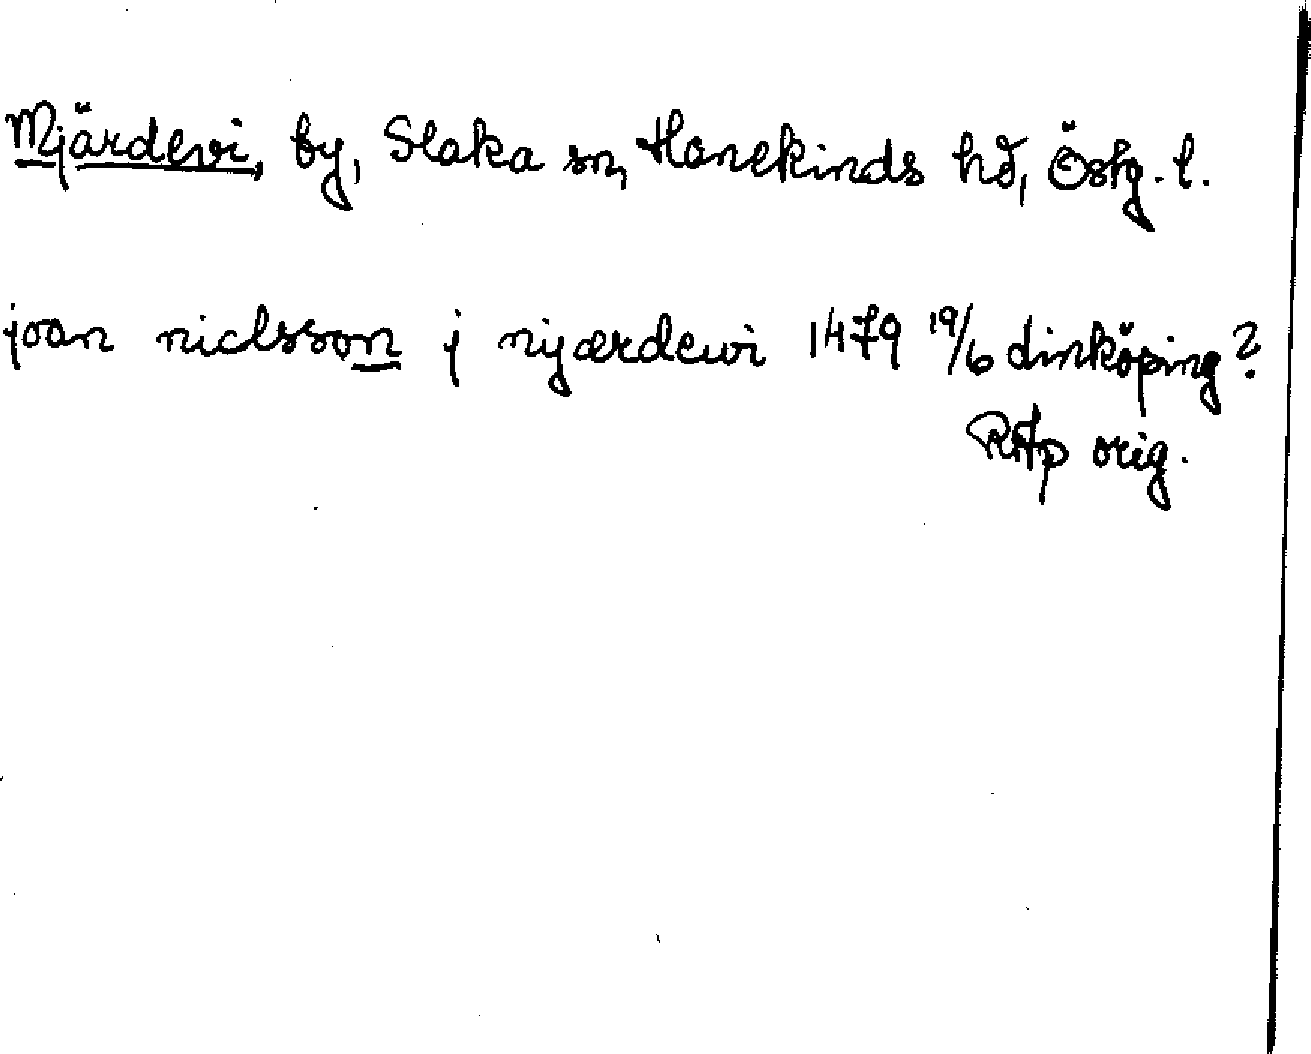 Mjärdevi, by, Slaka sn, Hanekinds hd, Östg. l.
joan niclsson j nyærdewi 1479 19/6 Linköping?
RAp orig.